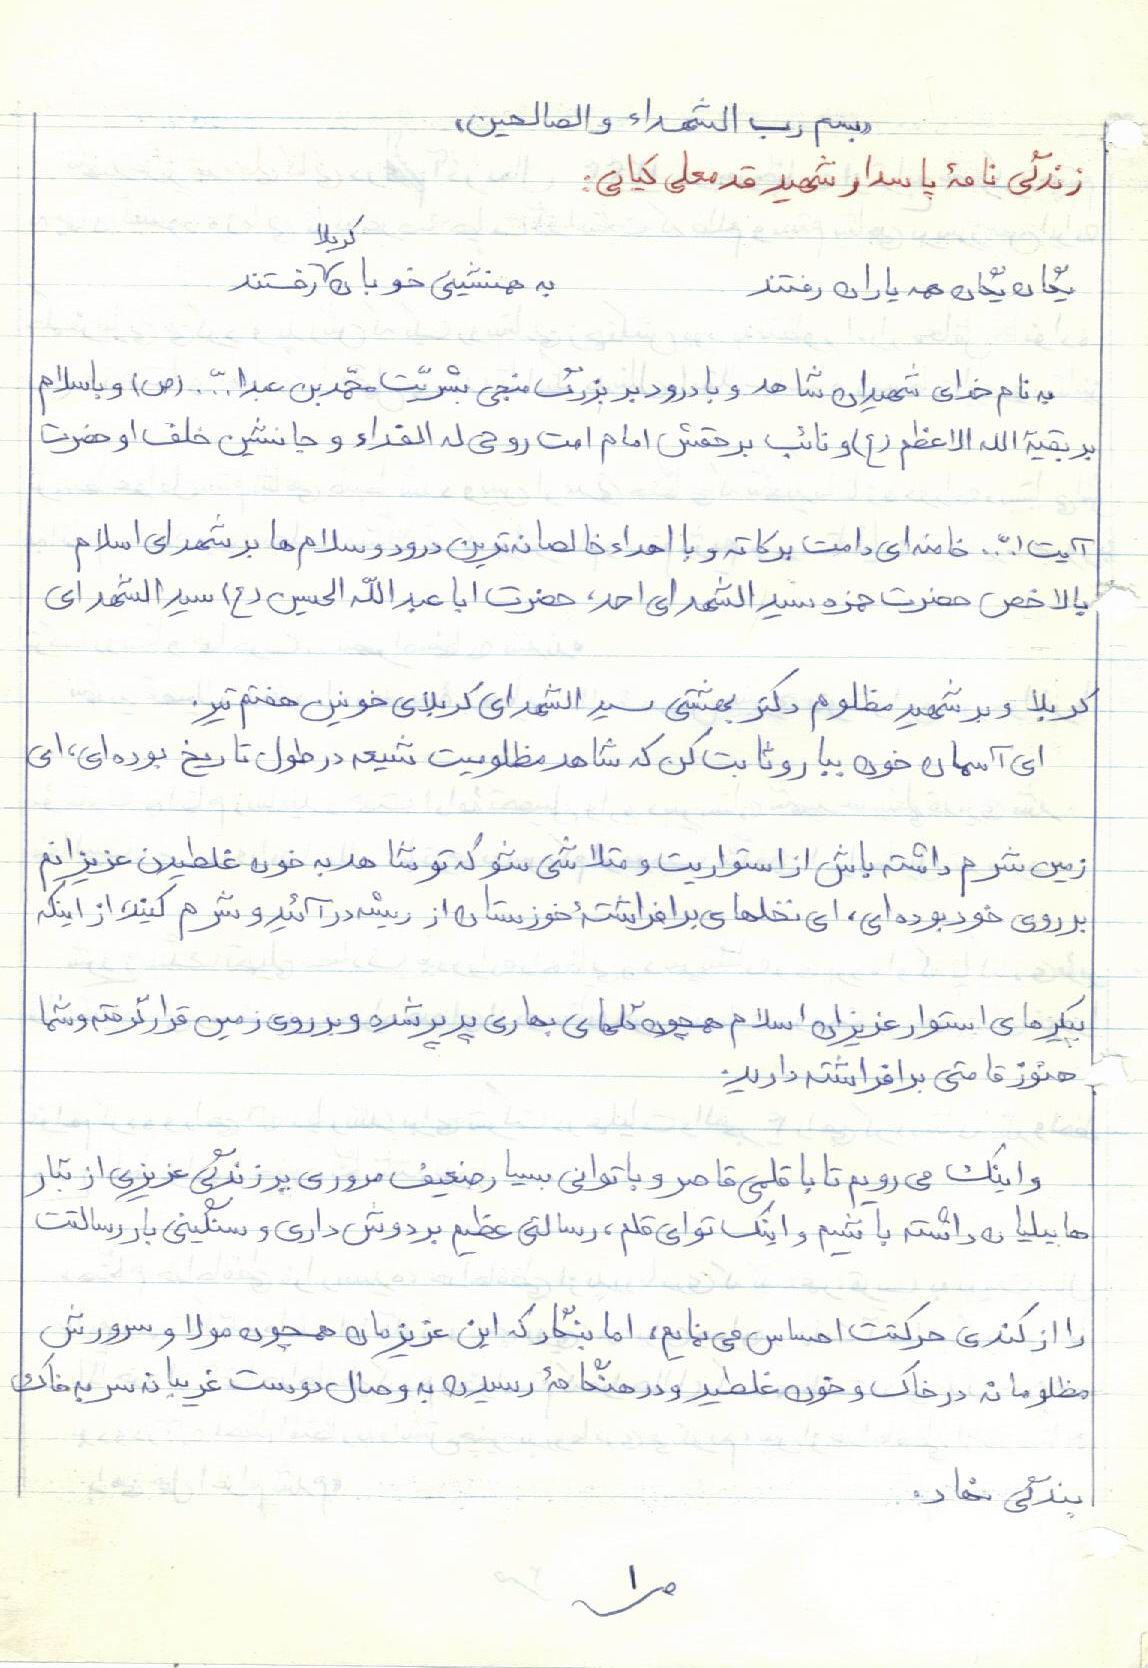 «بسم رب الشهداء والصالحین»
زندگی نامهٔ پاسدار شهید قدمعلی کیانی:
یگان یگان همه یاران رفتند    به همنشینی خوبان کربلا رفتند
به نام خدای شهیدان شاهد و با درود بر بزرگ منجی بشریّت محمّد بن عبدا... (ص) و با سلام
بر بقیة الله الاعظم (ع) و نائب برحقش امام امت روحی له الفداء و جانشین خلف او حضرت
آیت ا... خامنه‌ای دامت برکاته و با اهداء خالصانه‌ترین درود و سلام‌ها بر شهدای اسلام
بالاخص حضرت حمزه سید الشهدای احد، حضرت ابا عبد اللّه الحسین (ع) سید الشهدای
کربلا و بر شهید مظلوم دکتر بهشتی سید الشهدای کربلای خونین هفتم تیر.
ای آسمان خون ببار و ثابت کن که شاهد مظلومیت شیعه در طول تاریخ بوده‌ای، ای
زمین شرم داشته باش از استواریت و متلاشی شو که تو شاهد به خون غلطیدن عزیزانم
بر روی خود بوده‌ای، ای نخلهای برافراشتهٔ خوزستان از ریشه درآئید و شرم کنید از اینکه
پیکرهای استوار عزیزان اسلام همچون گلهای بهاری پرپر شده و بر روی زمین قرار گرفته و شما
هنوز قامتی برافراشته دارید.
و اینک می رویم تا با قلمی قاصر و با توانی بسیار ضعیف مروری بر زندگی عزیزی از تبار
هابیلیان داشته باشیم و اینک تو ای قلم، رسالتی عظیم بر دوش داری و سنگینی بار رسالتت
را از کندی حرکتت احساس می نمایم، اما بنگار که این عزیزمان همچون مولا و سرورش
مظلومانه در خاک و خون غلطید و در هنگامهٔ رسیدن به وصال دوست غریبانه سر به خاک
بندگی نهاد.
ص ۱